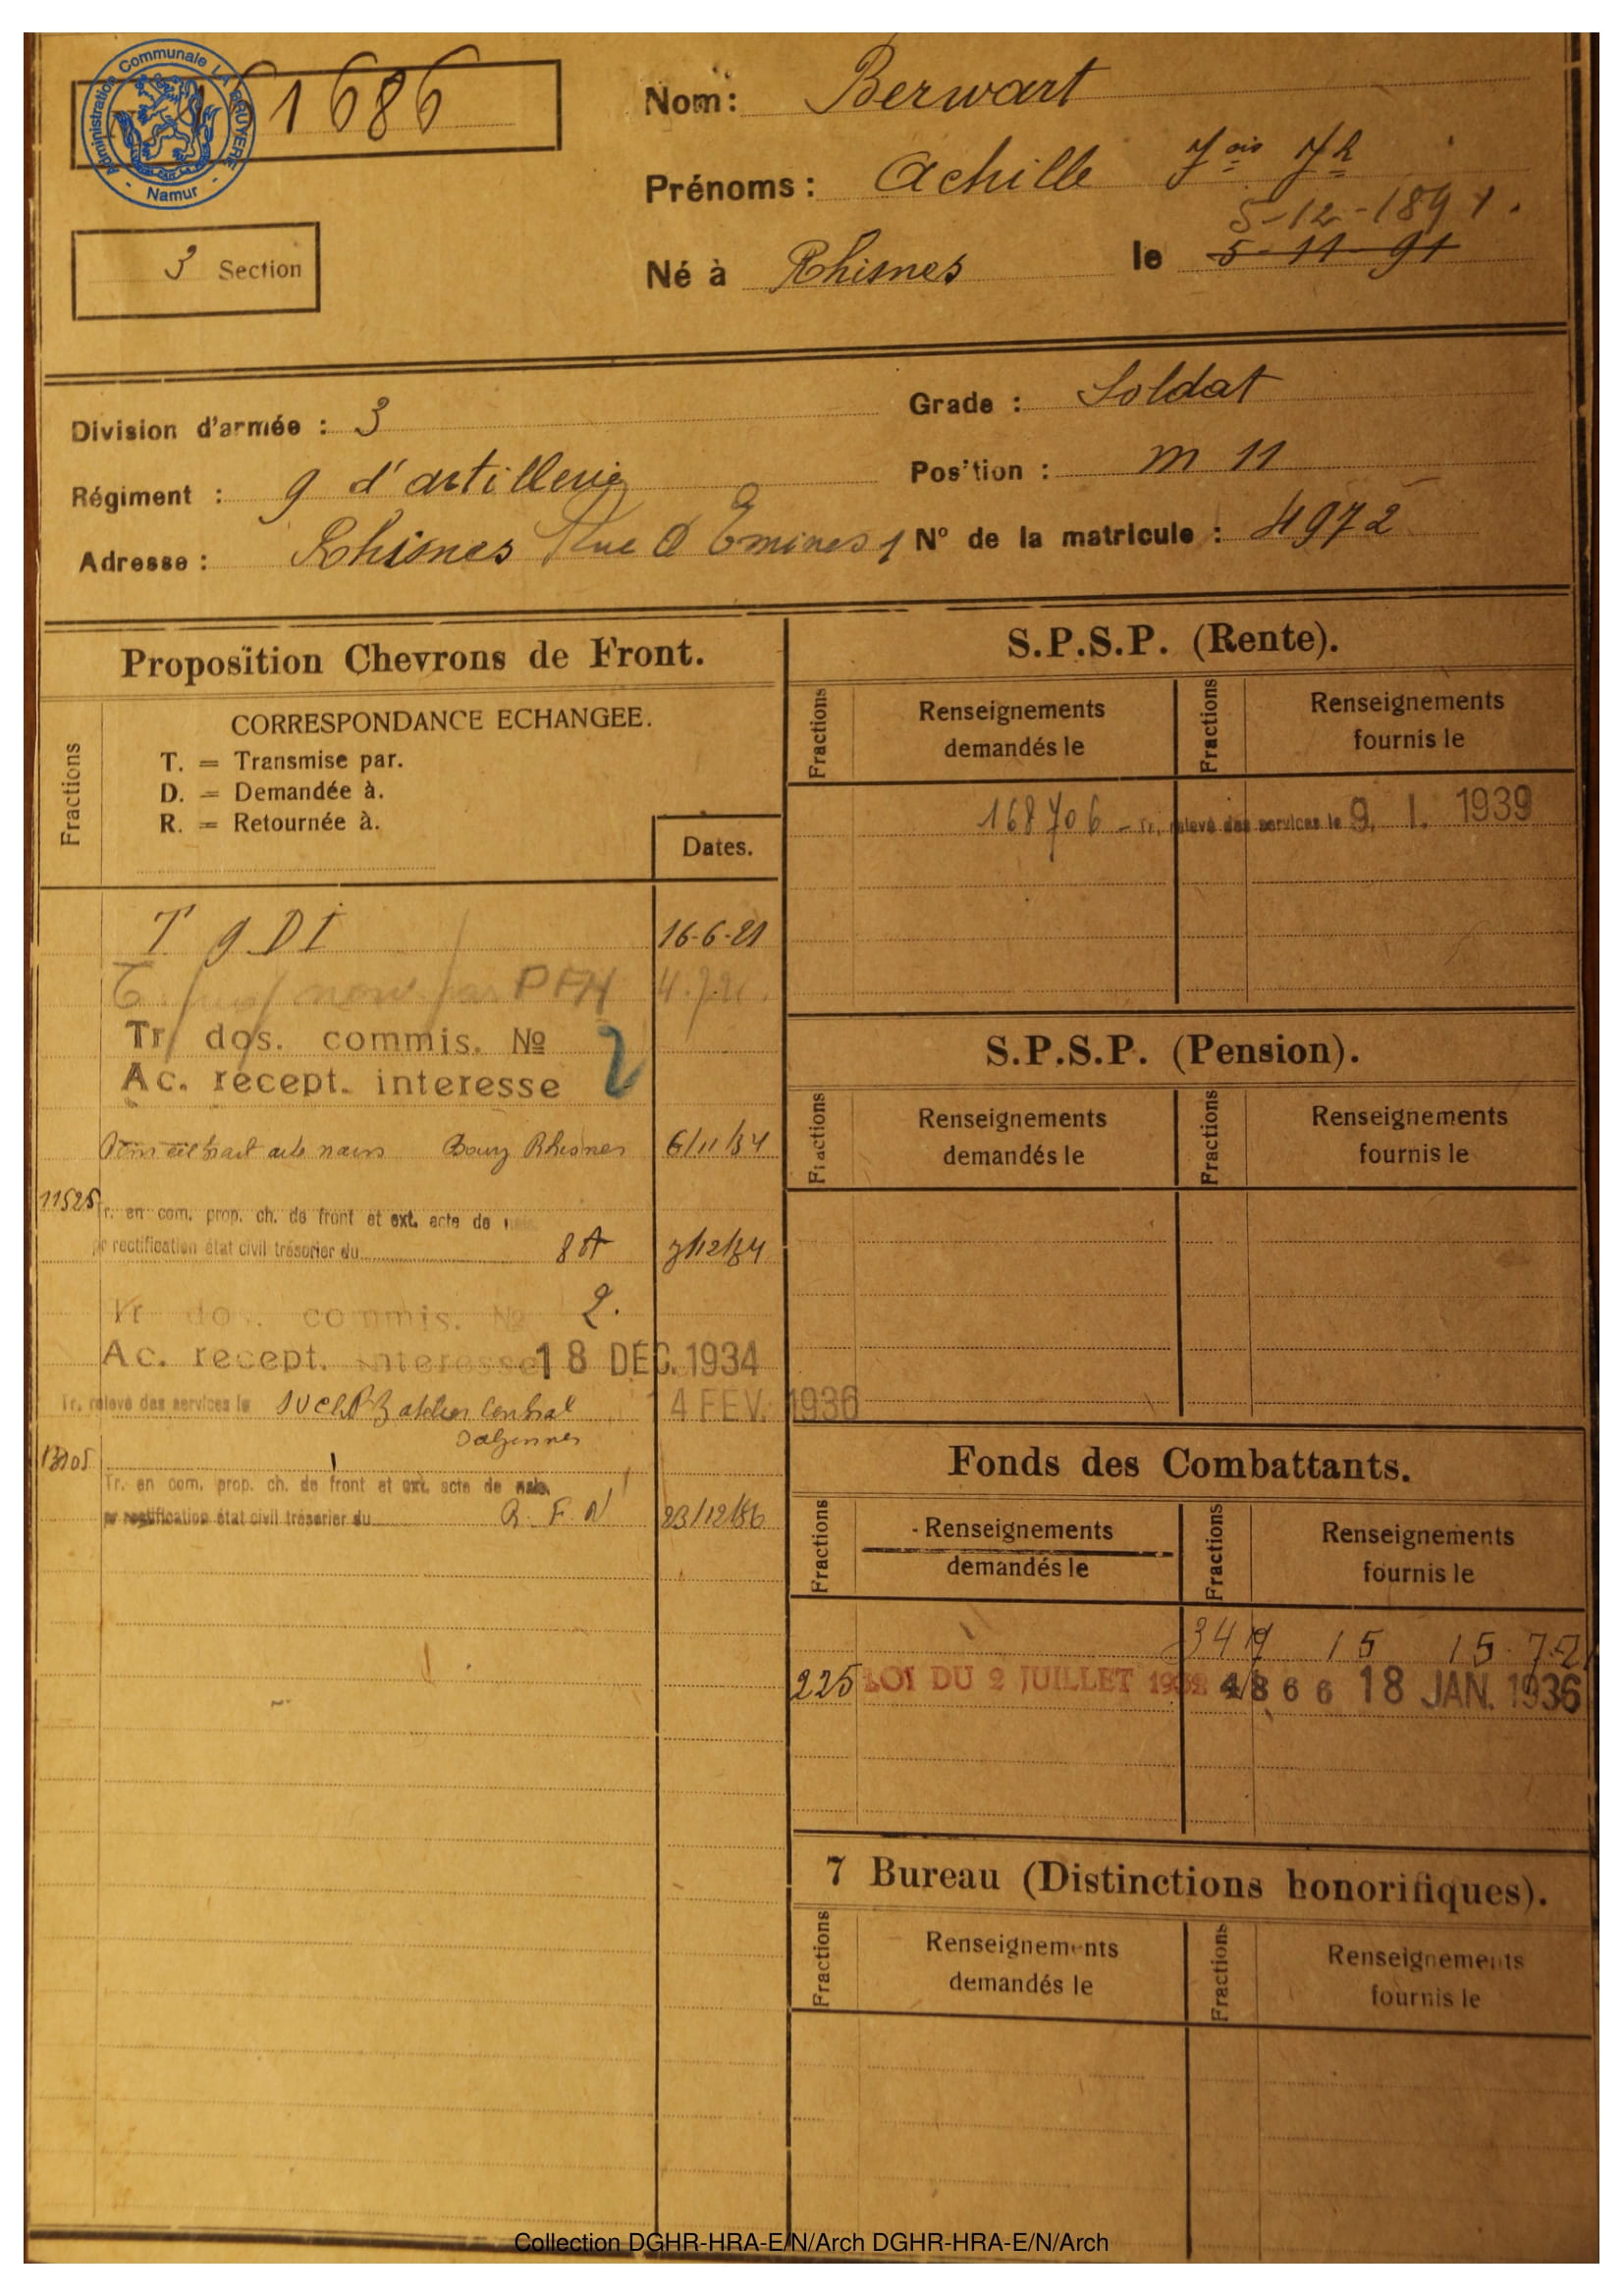 Administration Communale LA BRUYERE
- Namur -
1686
3 Section
Nom: Berwart
Prénoms: Achille Fois Jh
5-12-1891.
Né à Rhisnes le 5-11-91
Division d'armée : 3
Grade : Soldat
Régiment : 9 d'artillerie
Position : m 11
Adresse : Rhisnes Rue d'Emines 1
N° de la matricule : 4972
Proposition Chevrons de Front.
Fractions
CORRESPONDANCE ECHANGEE.
T. = Transmise par.
D. = Demandée à.
R. = Retournée à.
Dates.
T 9 DI 16-6-21
4.7.21.
Tr dos. commis. № 2
Ac. récept. interesse
extrait acte nais Bourg Rhisnes 6/11/34
11525 Tr. en com. prop. ch. de front et ext. acte de nais.
pr rectification état civil trésorier du 8 A 7/12/34
Tr dos. commis. № 2.
Ac. recept. interesse 18 DEC. 1934
Tr. relevé des services le atelier Central 14 FEV. 1936
Tr. en com. prop. ch. de front et ext. acte de nais.
pr rectification état civil trésorier du R. F. N 23/12/36
S.P.S.P. (Rente).
Fractions
Renseignements
demandés le
Fractions
Renseignements
fournis le
168706 - Tr. relevé des services le 9. 1. 1939
S.P.S.P. (Pension).
Fractions
Renseignements
demandés le
Fractions
Renseignements
fournis le
Fonds des Combattants.
Fractions
Renseignements
demandés le
Fractions
Renseignements
fournis le
15 15.7.2
225 LOI DU 2 JUILLET 1932 4866 18 JAN. 1936
7 Bureau (Distinctions honorifiques).
Fractions
Renseignements
demandés le
Fractions
Renseignements
fournis le
Collection DGHR-HRA-E/N/Arch DGHR-HRA-E/N/Arch